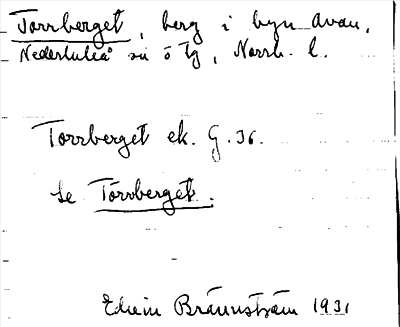 Torrberget, berg i byn Avan,
Nederluleå sn ö tg, Norrb. l.
Torrberget ek. G. 36.
Se Torrberget.
Edvin Brännström 1931